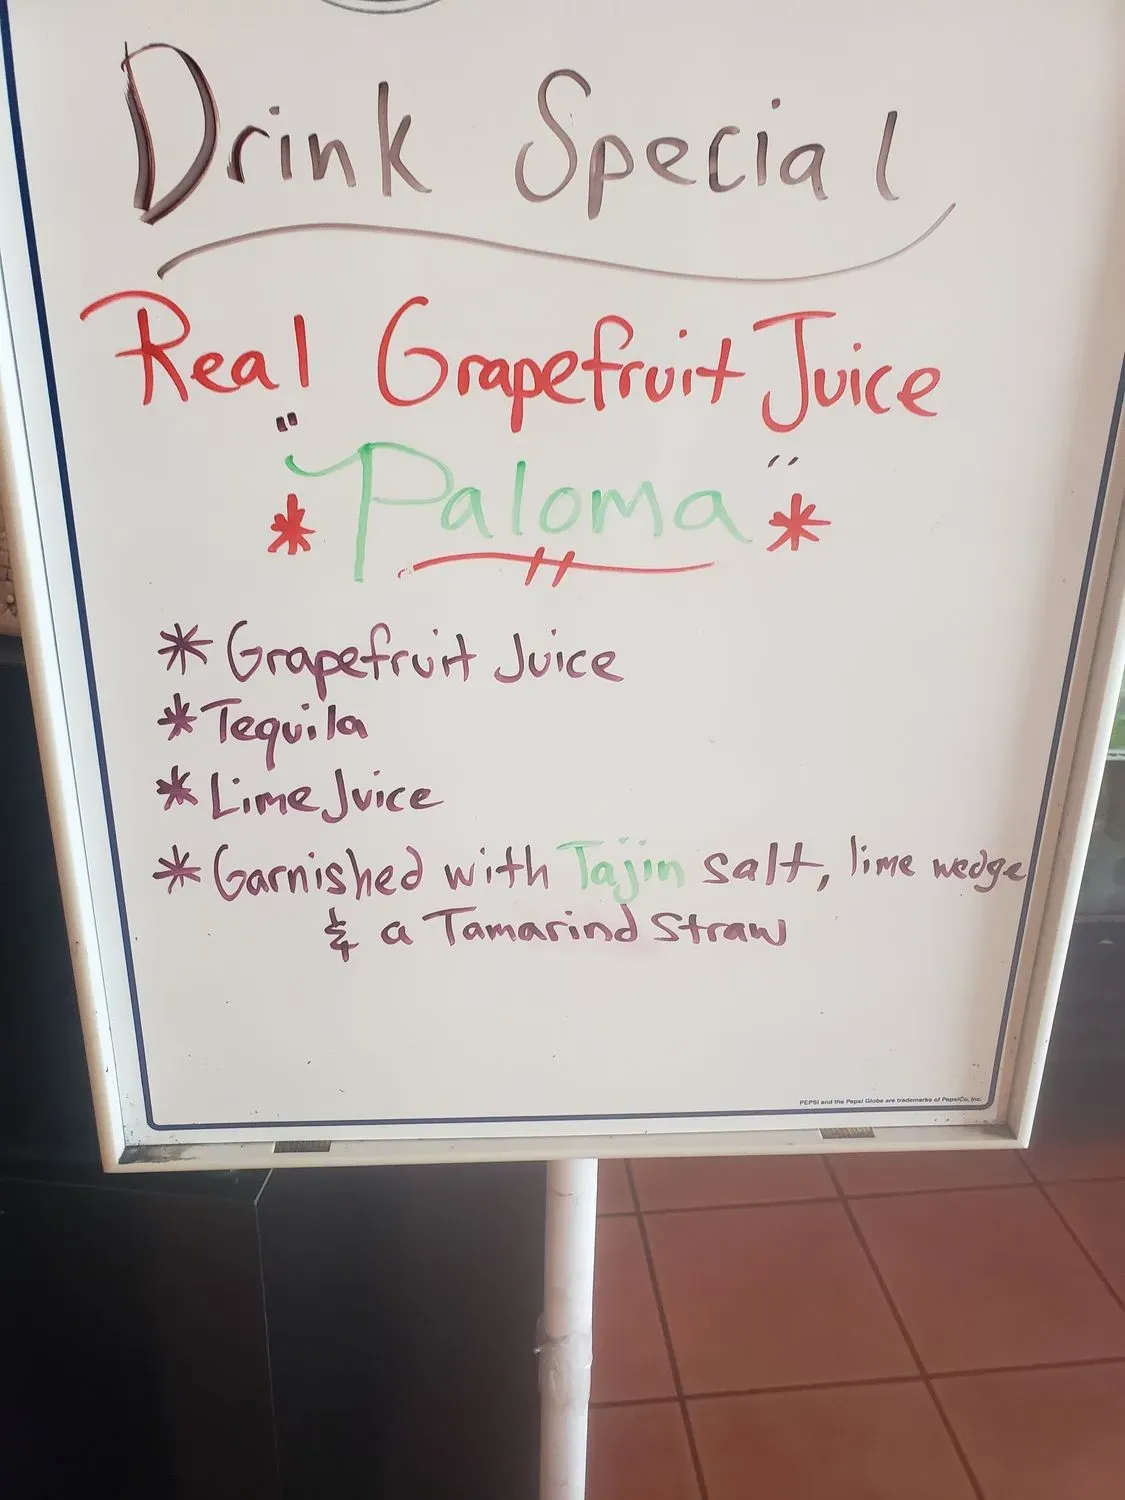 Drink Special
Real Grapefruit Juice
"Paloma"
* *
* Grapefruit Juice
* Tequila
* Lime Juice
* Garnished with Tajin salt, lime wedge
& a Tamarind Straw
PEPSI and the Pepsi Globe are trademarks of PepsiCo, Inc.